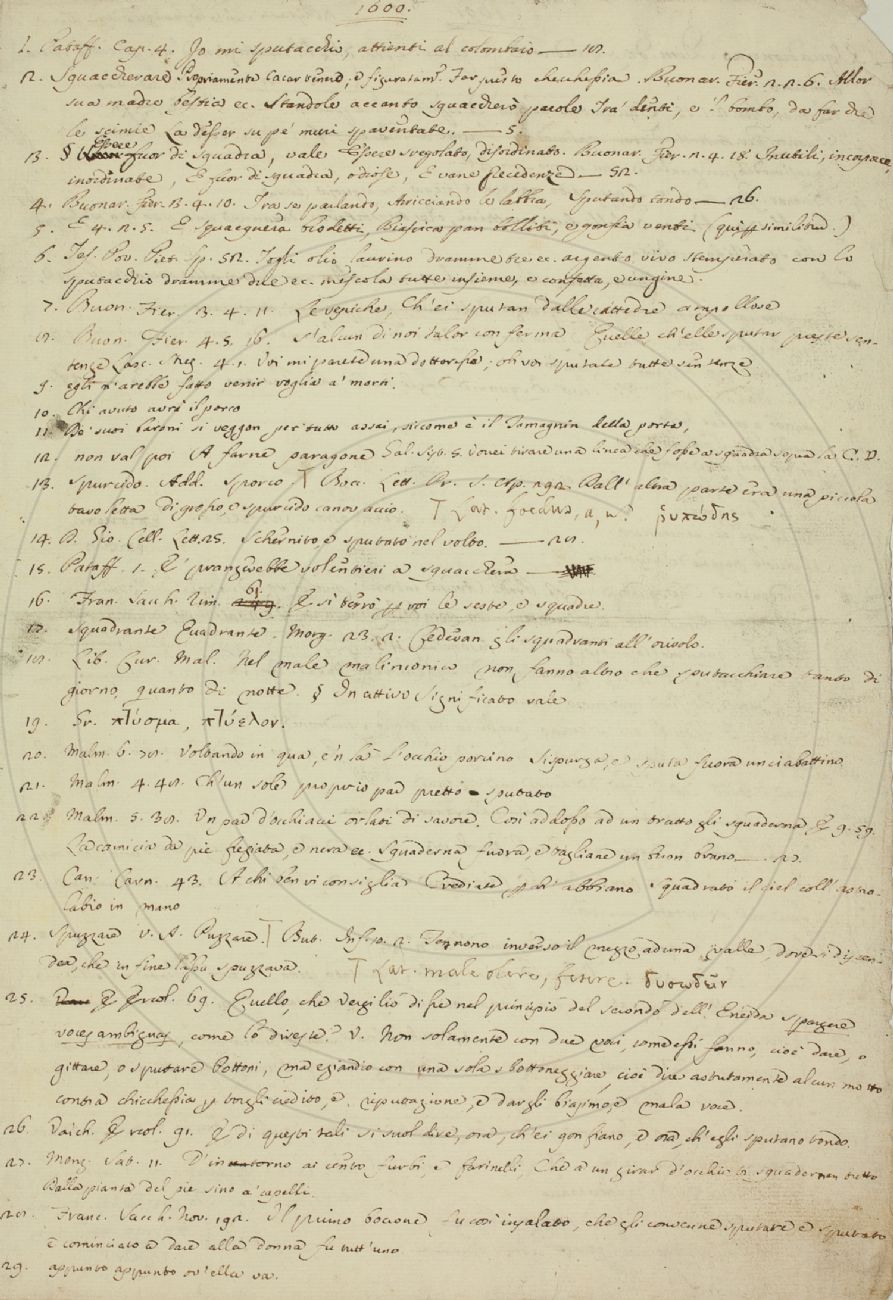 1600.
1. Pataff. Cap. 4. Io mi sputacchio, attienti al colombaio — 18.
2. Squaccherare Propriamente Cacar tenero, e figuratam. Far presto checchessia. Buonar. Fier. 2. 2. 6. Allor
sua madre bestia ec. Standole accanto squaccherò parole Tra' denti, e il bombo, da far che
le scimie La desser su pe' muri spaventate. — 5.
3. § Essere fuor di squadra, vale Essere sregolato, disordinato. Buonar. Fier. 2. 4. 18. Inutili, incapace,
inordinate, E fuor di squadra, odiose, E vane precedenze — 52.
4. Buonar. Fier. 3. 4. 10. Tra se parlando, Arricciando le labbia, Sputando tondo — 26.
5. E 4. 2. 5. E squacquera brodetti, Biascica pan bolliti, e gonfia venti (qui per similitud.)
6. Tes. Pov. Piet. Sp. 52. Togli olio laurino dramme tre ec. argento vivo stemperato con lo
sputacchio dramme due ec. mescola tutte insieme, e confetta, e ungine.
7. Buon. Fier. 3. 4. 11. Le vesciche, Ch'ei sputan dalle cattedre ampollose
8. Buon. Fier. 4. 5. 16. S'alcun di noi talor conferma Quelle ch'elle sputar peste sen-
tenze Lasc. Streg. 4. 1. Voi mi parete una dottoressa, oh voi sputate tutte sentenze
9. egli n'arebbe fatto venir voglia a' morti.
10. Chi avuto avrà il porco
11. De' suoi baroni si veggon per tutto assai, siccome è il Tamagnin della porta,
12. non val poi A farne paragone Gal. Sist. 5. Vorrei tirare una linea che fosse a squadra sopra la C. D.
13. Spurcido. Add. Sporco T Bocc. Lett. Pr. S. Ap. 292. Dall' altra parte era una piccola
tavoletta di grosso, e spurcido canovaccio. T Lat. foedus, a, um. ῥυπώδης
14. D. Gio. Cell. Lett. 25. Schernito, e sputato nel volto. — 28.
15. Pataff. 1. E' pranzerebbe volentieri a squacchera —
16. Fran. Sacch. Rim. 61. E si terrò per voi le seste, e squadre.
17. Squadrante Quadrante. Morg. 23. 2. Cedevan gli squadranti all' oriolo.
18. Lib. Cur. Mal. Nel male malinconico non fanno altro che sputacchiare tanto di
giorno, quanto di notte. § In attivo significato vale
19. Gr. πτύσμα, πτύελον.
20. Malm. 6. 78. Voltando in qua, e'n là L'occhio porcino Si spurga, e sputa fuora un ciabattino.
21. Malm. 4. 48. Ch'un sole proprio par pretto sputato
22. Malm. 5. 38. Un par d'occhiacci orlati di savore. Così addosso ad un tratto gli squaderna, E 9. 59.
La camicia da piè fregiata, e nera ec. Squaderna fuora, e tagliane un buon brano — . 27.
23. Can. Carn. 43. A chi ben vi consiglia Crediate, per ch'abbiamo Squadrato il ciel coll' astro-
labio in mano
24. Spuzzare V. A. Puzzare. T But. Inf. 10. 2. Tennono inverso il mezzo ad una valle, dove si discen-
dea, che in fine lassù spuzzava. T Lat. male olere, fetere. δυσωδεῖν
25. E Ercol. 69. Quello, che Vergilio disse nel principio del secondo dell' Eneida spargere
voces ambiguas, come lo direste? V. Non solamente con due voci, come essi fanno, cioè dare, o
gittare, o sputare bottoni, ma eziandio con una sola sbottoneggiare, cioè dire astutamente alcun motto
contra chicchessia per torgli credito, e riputazione, e dargli biasimo, e mala voce.
26. Varch. Ercol. 91. E di questi tali si suol dire, ora, ch'ei gonfiano, e ora, ch'egli sputano tondo.
27. Menz. Sat. 11. D'intorno ai cento furbi, e farinelli, Che a un girar d'occhio ti squadernan tutto
Dalla pianta del piè sino a' capelli.
28. Franc. Sacch. Nov. 192. Il primo boccone fu così insalato, che gli convenne sputare e sputato
e cominciato a dare alla donna fu tutt' uno
29. appunto appunto ov'ella va.